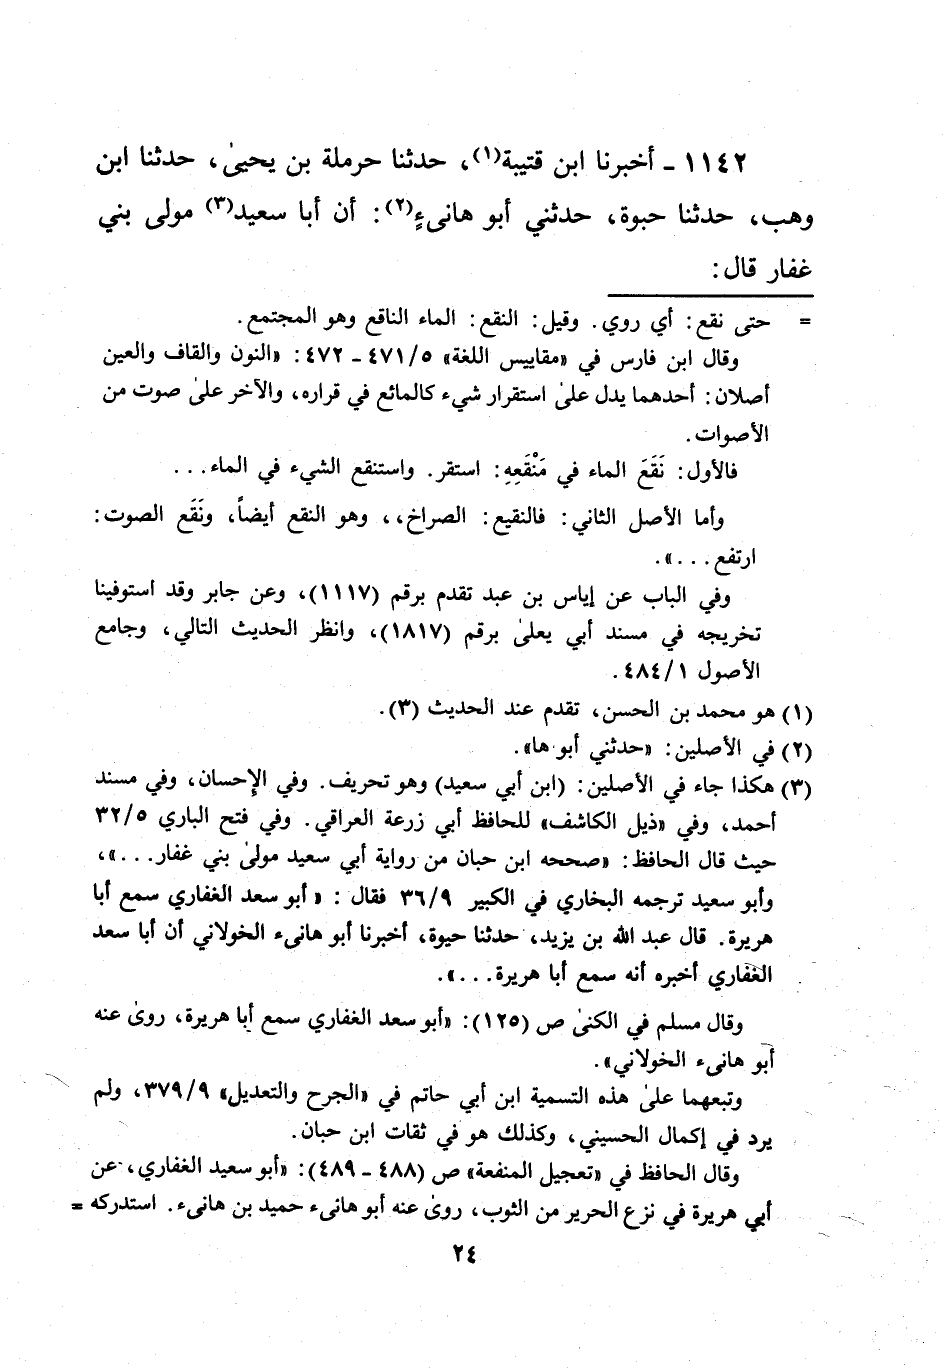 ١١٤٢ - أخبرنا ابن قتيبة(١)، حدثنا حرملة بن يحيىٰ، حدثنا ابن
وهب، حدثنا حبوة، حدثني أبو هانىءٍ(٢): أن أبا سعيد(٣) مولى بني
غفار قال:
= حتى نقع: أي روي. وقيل: النقع: الماء الناقع وهو المجتمع.
وقال ابن فارس في «مقاييس اللغة» ٤٧١/٥ - ٤٧٢: «النون والقاف والعين
أصلان: أحدهما يدل علىٰ استقرار شيء كالمائع في قراره، والآخر علىٰ صوت من
الأصوات.
فالأول: نَقَعَ الماء في مَنْقَعِهِ: استقر. واستنقع الشيء في الماء...
وأما الأصل الثاني: فالنقيع: الصراخ،، وهو النقع أيضاً، ونَقَع الصوت:
ارتفع...».
وفي الباب عن إياس بن عبد تقدم برقم (١١١٧)، وعن جابر وقد استوفينا
تخريجه في مسند أبي يعلىٰ برقم (١٨١٧)، وانظر الحديث التالي، وجامع
الأصول ٤٨٤/١.
(١) هو محمد بن الحسن، تقدم عند الحديث (٣).
(٢) في الأصلين: «حدثني أبو ها».
(٣) هكذا جاء في الأصلين: (ابن أبي سعيد) وهو تحريف. وفي الإحسان، وفي مسند
أحمد، وفي «ذيل الكاشف» للحافظ أبي زرعة العراقي. وفي فتح الباري ٣٢/٥
حيث قال الحافظ: «صححه ابن حبان من رواية أبي سعيد مولىٰ بني غفار...»،
وأبو سعيد ترجمه البخاري في الكبير ٣٦/٩ فقال : «أبو سعد الغفاري سمع أبا
هريرة. قال عبد الله بن يزيد، حدثنا حيوة، أخبرنا أبو هانىء الخولاني أن أبا سعد
الغفاري أخبره أنه سمع أبا هريرة...».
وقال مسلم في الكنىٰ ص (١٢٥): «أبو سعد الغفاري سمع أبا هريرة، روىٰ عنه
أبو هانىء الخولاني».
وتبعهما علىٰ هذه التسمية ابن أبي حاتم في «الجرح والتعديل» ٣٧٩/٩، ولم
يرد في إكمال الحسيني، وكذلك هو في ثقات ابن حبان.
وقال الحافظ في «تعجيل المنفعة» ص (٤٨٨ - ٤٨٩): «أبو سعيد الغفاري، عن
أبي هريرة في نزع الحرير من الثوب، روىٰ عنه أبو هانىء حميد بن هانىء. استدركه =
٢٤